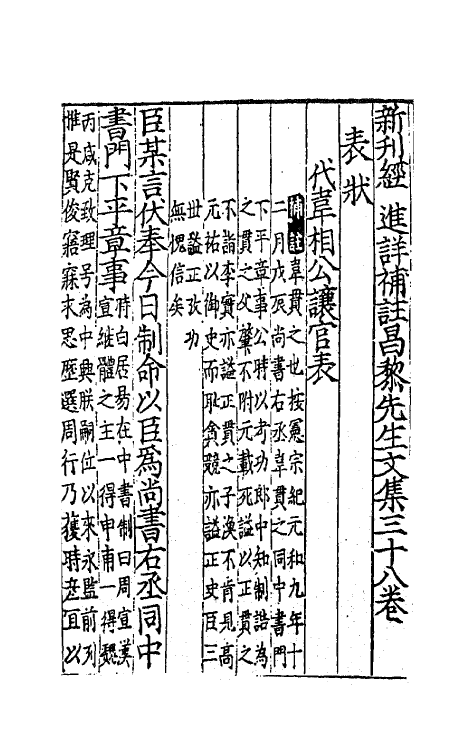 新刊經進詳補註昌黎先生文集三十八卷
表狀
代韋相公讓官表
補註韋貫之也按憲宗紀元和九年十
二月戊辰尚書右丞韋貫之同中書門
下平章事公時以考功郎中知制誥為
之貫之父肇不附元載死諡以正貫之
不詣李實亦諡正貫之子澳不肯見高
元裕以御史而恥貪競亦諡正史臣三
世諡正攻功
無愧信矣
臣某言伏奉今日制命以臣為尚書右丞同中
書門下平章事時白居易在中書制曰周宣漢
宣維體之主一得申甫一得魏
丙咸克致理号為中典朕嗣位以來永監前列
惟是賢俊寤寐求思歷選周行乃獲時彦宜以